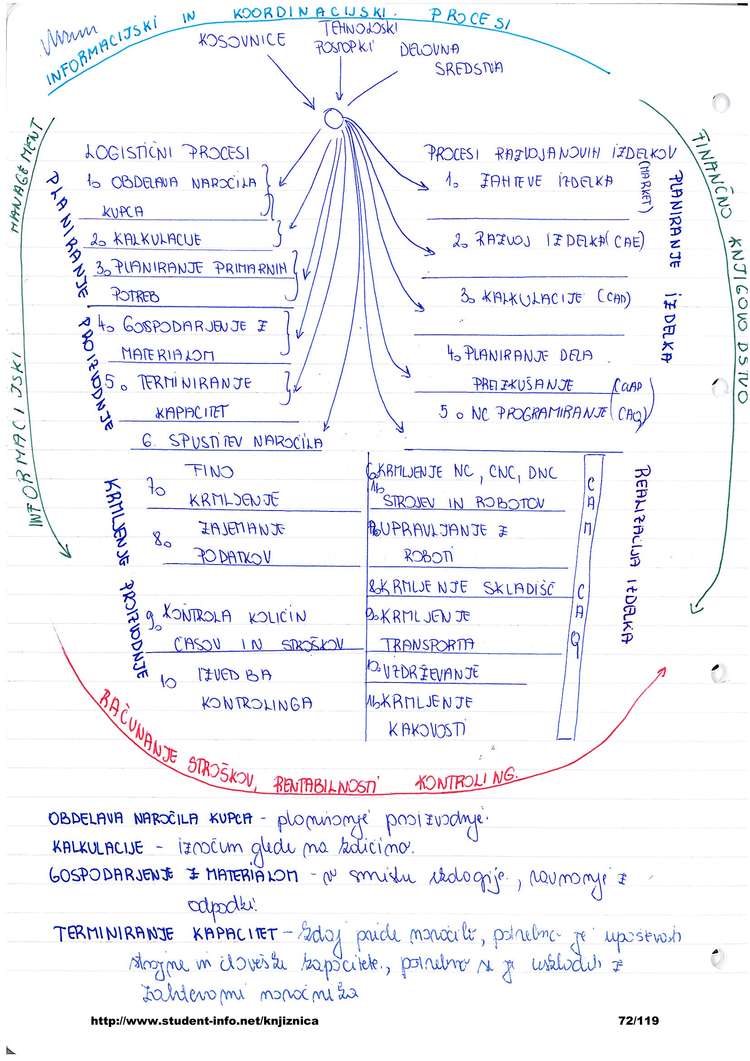 INFORMACIJSKI IN KOORDINACIJSKI PROCESI
KOSOVNICE
TEHNOLOŠKI
POSTOPKI
DELOVNA
SREDSTVA
MANAGEMENT
INFORMACIJSKI
FINANČNO KNJIGOVODSTVO
LOGISTIČNI PROCESI
1. OBDELAVA NAROČILA
KUPCA
2. KALKULACIJE
3. PLANIRANJE PRIMARNIH
POTREB
4. GOSPODARJENJE Z
MATERIALOM
5. TERMINIRANJE
KAPACITET
6. SPUSTITEV NAROČILA
PLANIRANJE PROIZVODNJE
PROCESI RAZVOJA NOVIH IZDELKOV
1. ZAHTEVE IZDELKA
(MARKET)
2. RAZVOJ IZDELKA (CAE)
3. KALKULACIJE (CAD)
4. PLANIRANJE DELA
PREIZKUŠANJE (CAAP)
5. NC PROGRAMIRANJE (CAQ)
PLANIRANJE IZDELKA
7. FINO
KRMILJENJE
8. ZAJEMANJE
PODATKOV
9. KONTROLA KOLIČIN
ČASOV IN STROŠKOV
10 IZVEDBA
KONTROLINGA
KRMILJENJE PROIZVODNJE
6. KRMILJENJE NC, CNC, DNC
STROJEV IN ROBOTOV
7. UPRAVLJANJE Z
ROBOTI
8. KRMILJENJE SKLADIŠČ
9. KRMILJENJE
TRANSPORTA
10. VZDRŽEVANJE
11. KRMILJENJE
KAKOVOSTI
CAM
CAQ
REALIZACIJA IZDELKA
RAČUNANJE STROŠKOV, RENTABILNOSTI KONTROLING.
OBDELAVA NAROČILA KUPCA - planiranje proizvodnje.
KALKULACIJE - izračun glede na količino.
GOSPODARJENJE Z MATERIALOM - v smislu ekologije, ravnanje z
odpadki.
TERMINIRANJE KAPACITET - kdaj pride naročilo, potrebno je upoštevati
strojne in človeške kapacitete., potrebno se je uskladiti z
zahtevami naročnika
http://www.student-info.net/knjiznica
72/119